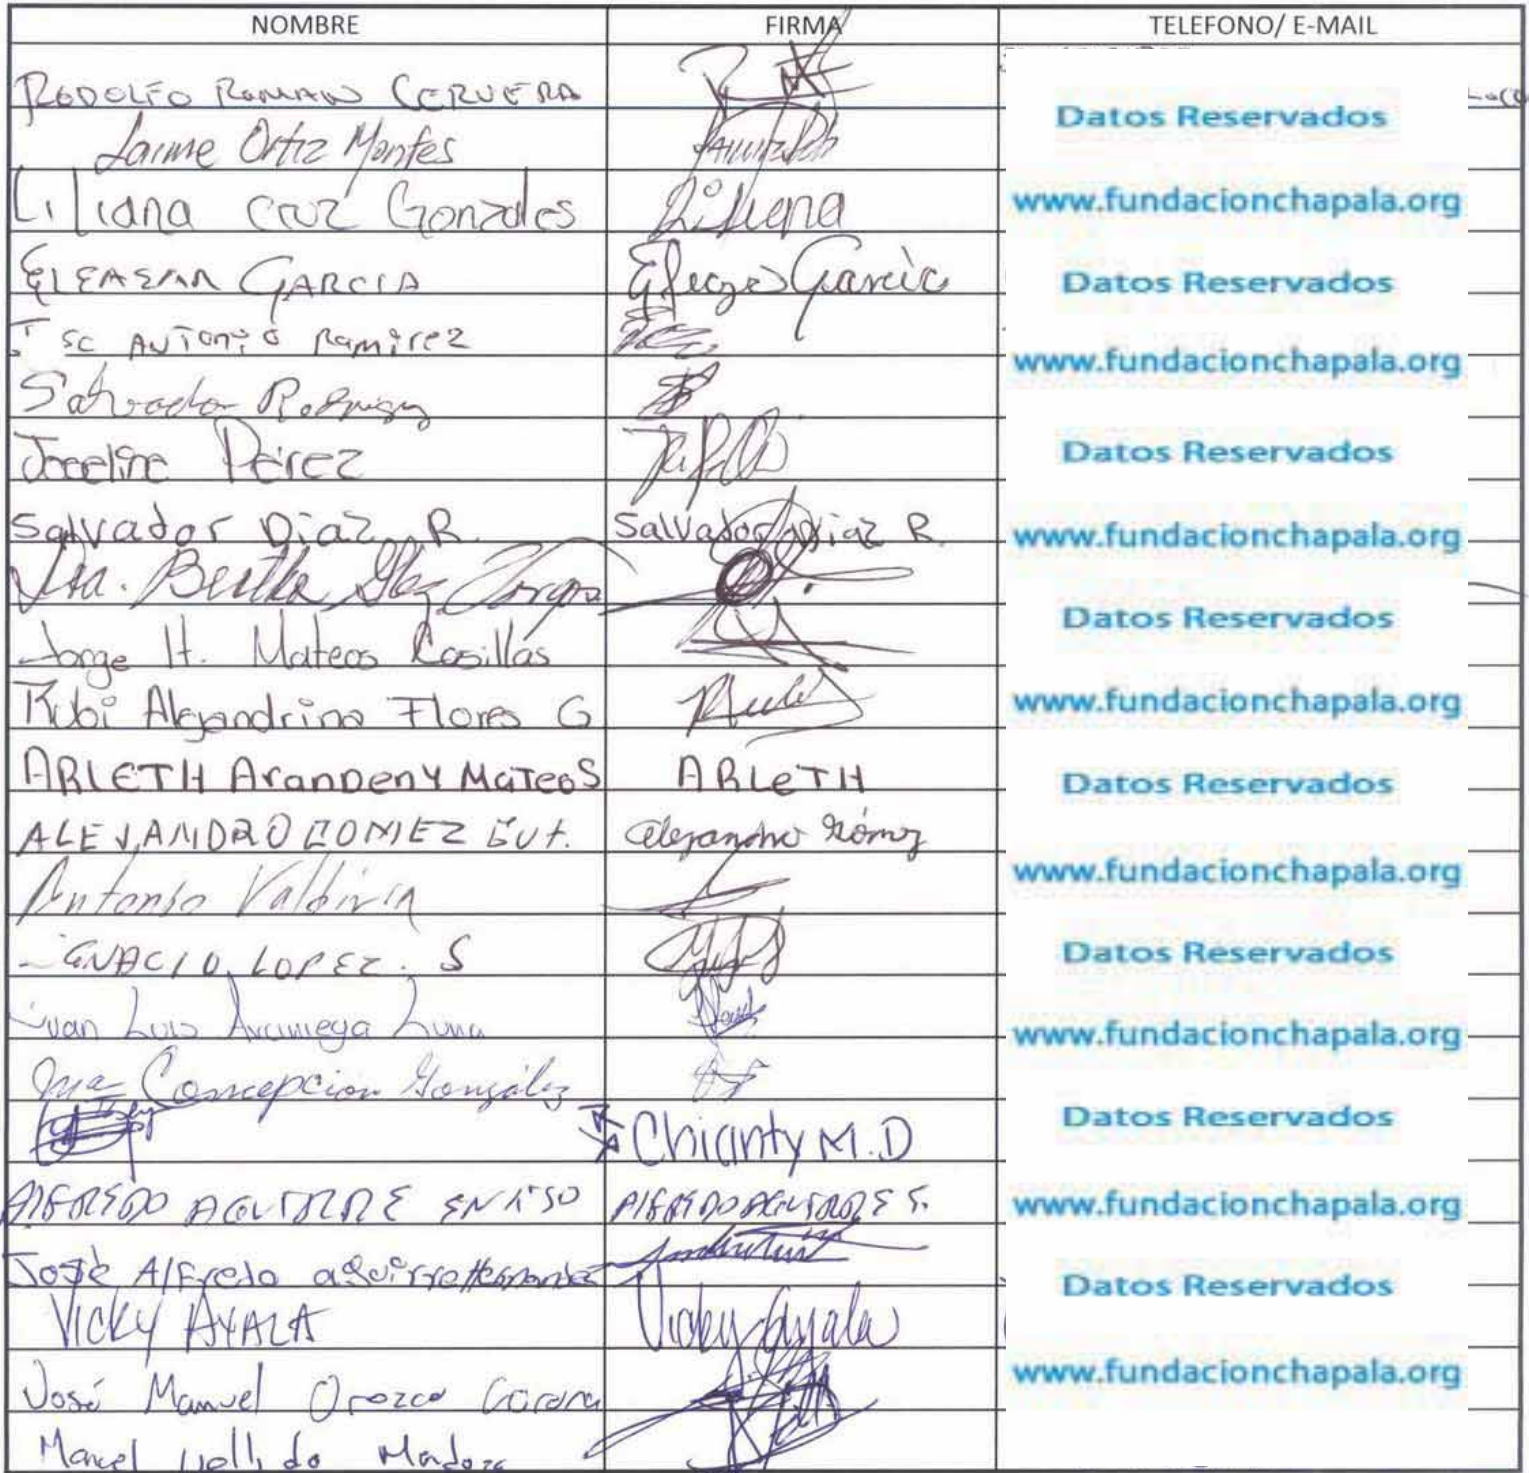 NOMBRE FIRMA TELEFONO/ E-MAIL
RODOLFO ROMAN CERVERA
Datos Reservados
Jaime Ortiz Montes
Liliana Cruz Gonzales Liliana www.fundacionchapala.org
ELEASAR GARCIA Garcia Datos Reservados
ANTONIO Ramirez www.fundacionchapala.org
Salvador
Joceline Pérez Datos Reservados
Salvador Diaz R. Salvador Diaz R. www.fundacionchapala.org
Dra. Bertha Glez
Datos Reservados
Jorge H. Mateos Casillas
Rubi Alejandrina Flores G www.fundacionchapala.org
ARLETH AranDenY MaTeoS ARLeTH Datos Reservados
ALEJANDRO GOMEZ GUT. Alejandro Gómez
www.fundacionchapala.org
Antonio Valdivia
IGNACIO LOPEZ. S Datos Reservados
Juan Luis Aramiega Luna www.fundacionchapala.org
Ma Concepcion González
Chianty M.D Datos Reservados
ALFREDO AGUIRRE www.fundacionchapala.org
José AlFredo aguirre Hernandez Datos Reservados
VICKY AYALA Vicky Ayala
José Manuel Orozco www.fundacionchapala.org
Manuel